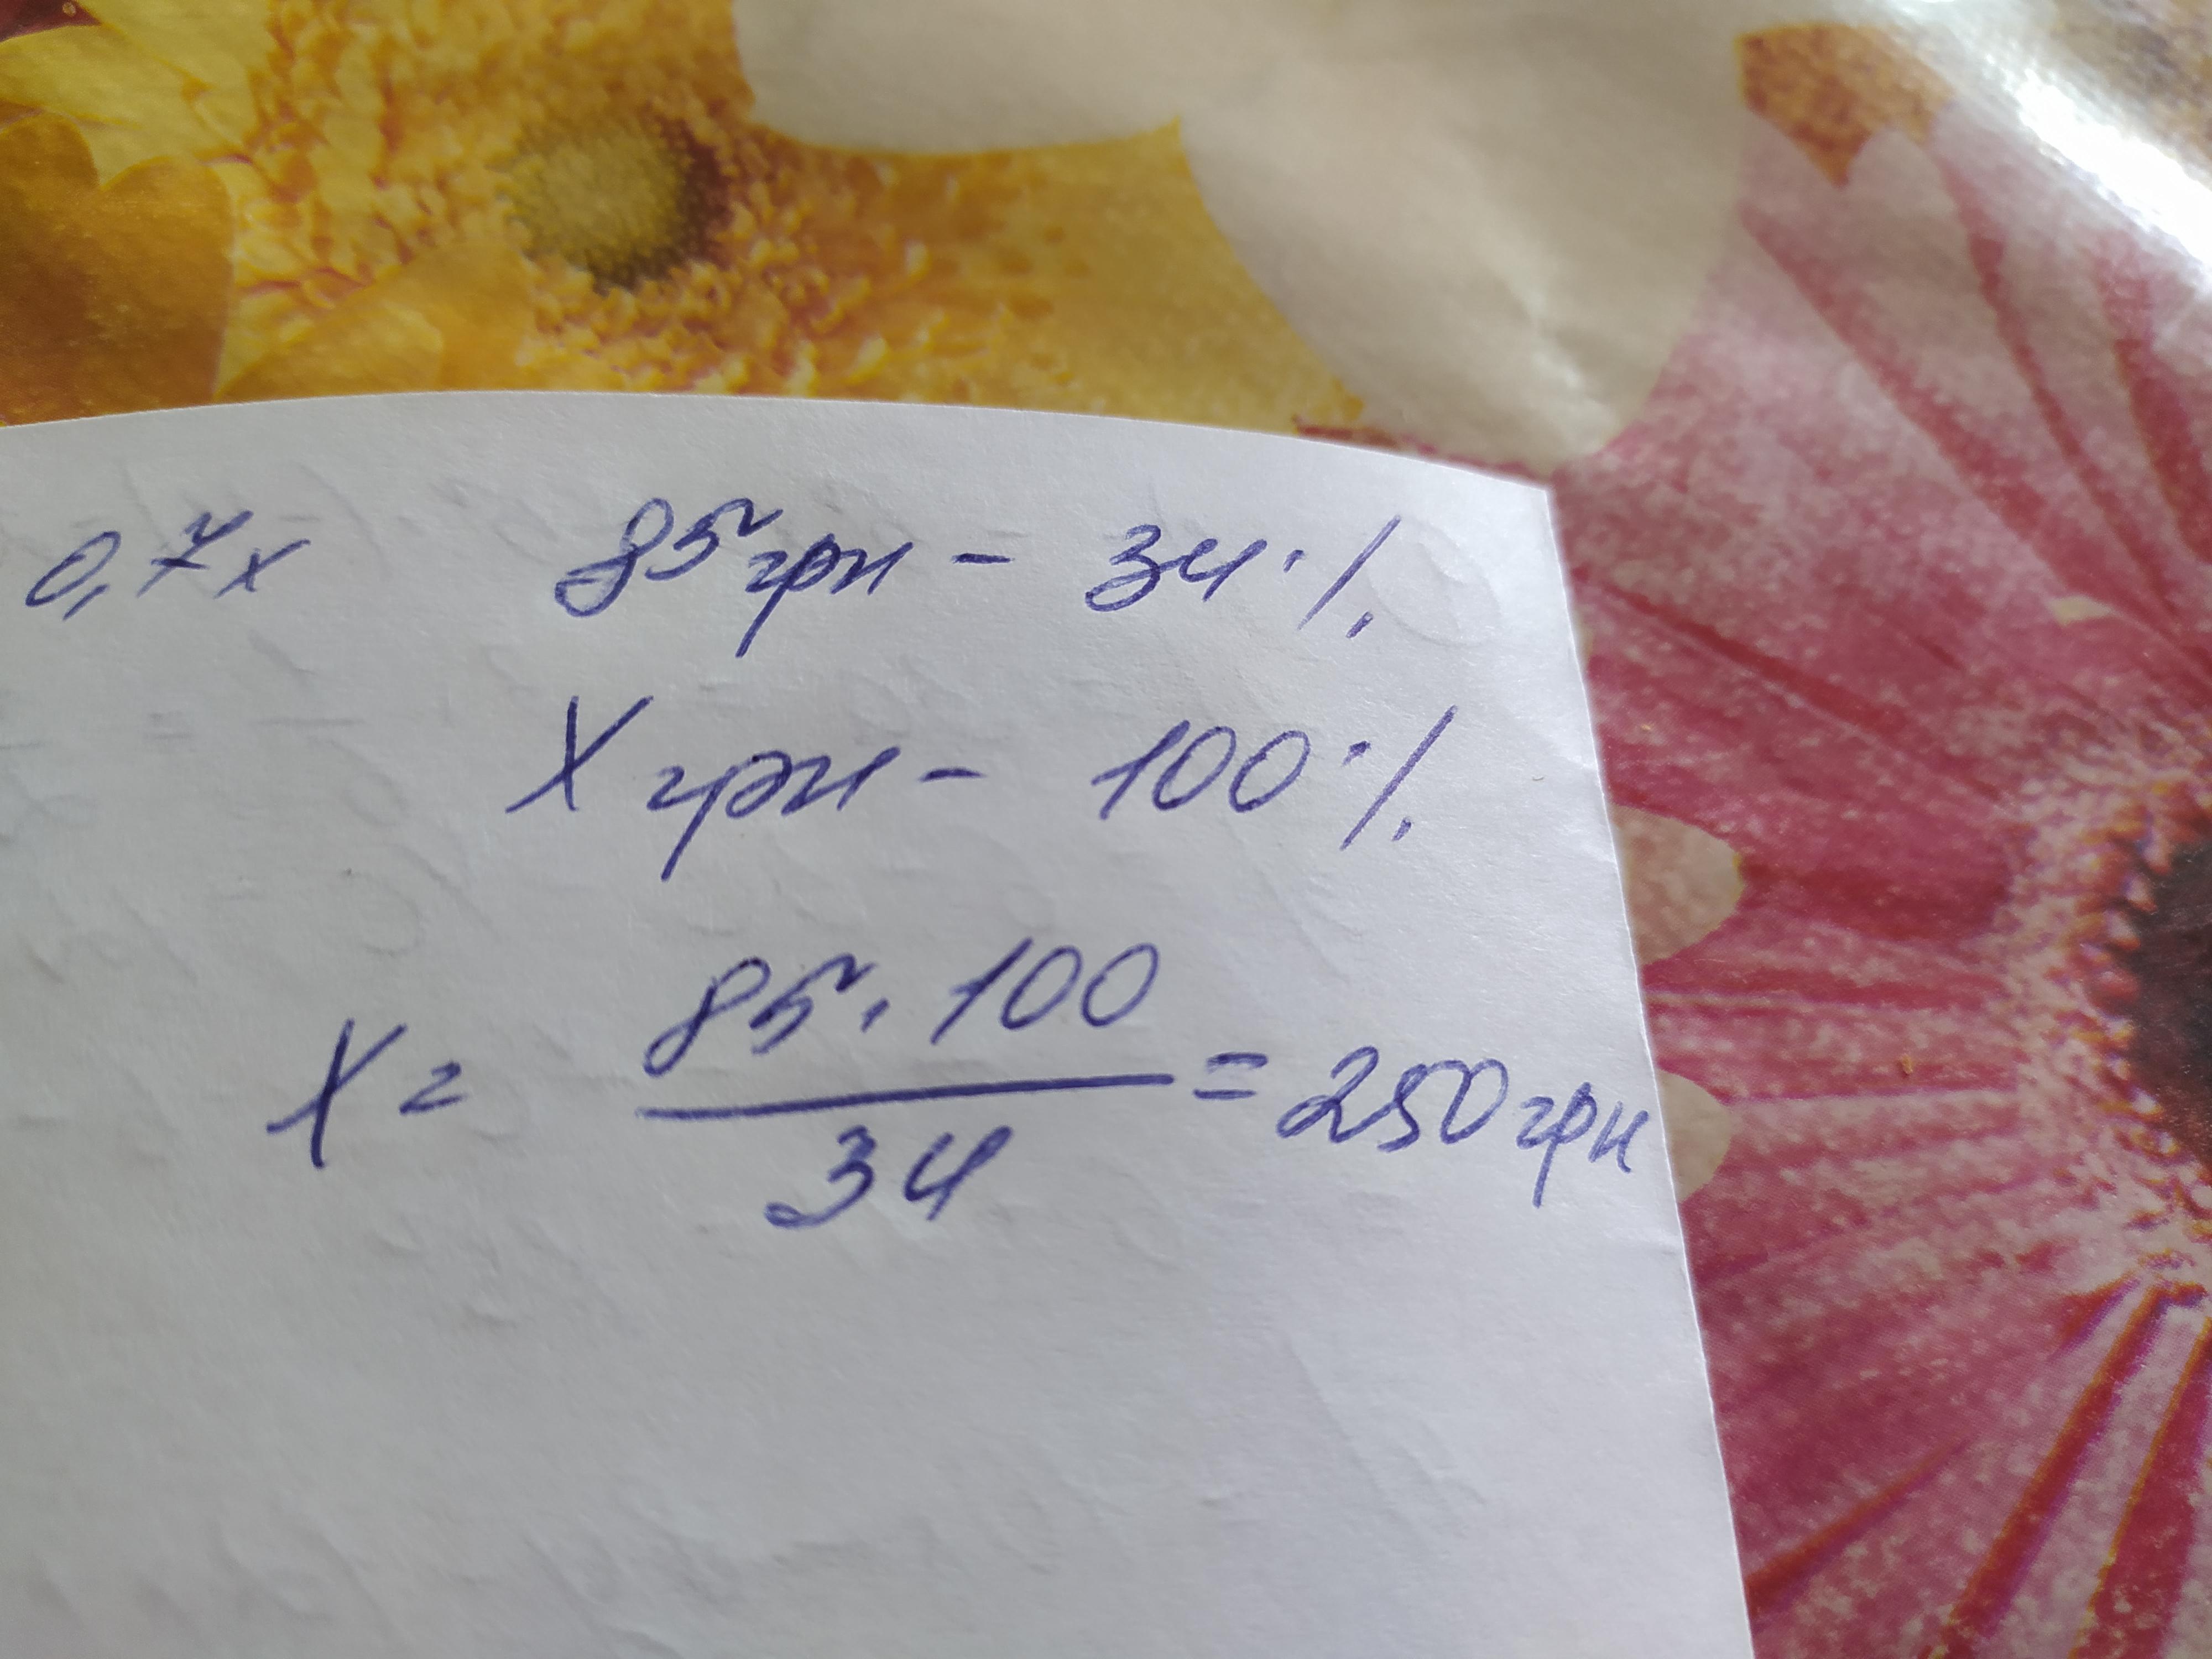 0,7x 85 грн - 34 %
X грн - 100 %
X = 85 · 100 / 34 = 250 грн